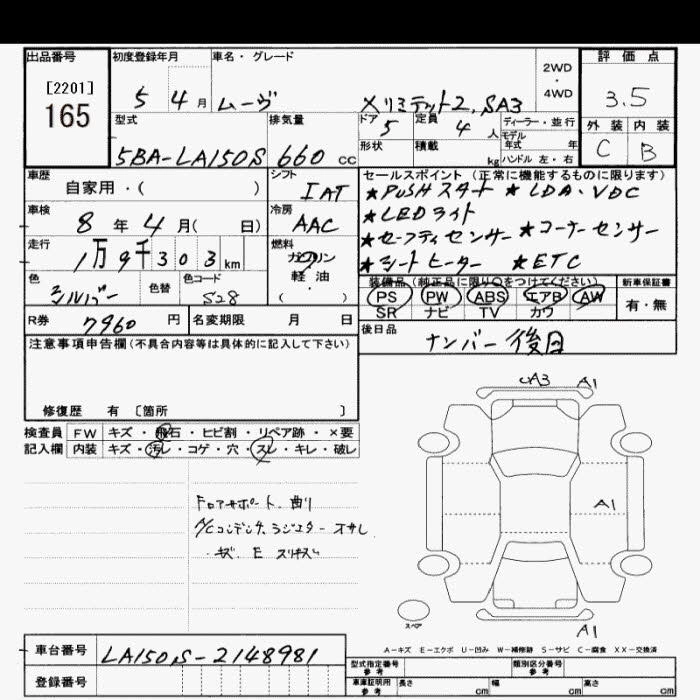 出品番号
[2201]
165
初度登録年月
5 4 月
車名・グレード
ムーヴ
メリミテット2, SA3
2WD
・
4WD
評価点
3.5
外装 内装
C B
型式
5BA-LA150S
排気量
660 cc
ドア
5
定員
4 人
ディーラー・並行
モデル
年式 年
形状
積載
kg
ハンドル 左・右
車歴
自家用・( )
シフト
IAT
車検
8 年 4 月( 日)
冷房
AAC
走行
1万9千303 km
燃料
ガソリン
軽油
( )
色
シルバー
色替
色コード
S28
セールスポイント (正常に機能するものに限ります)
★PUSHスタート ★LDA・VDC
★LEDライト
★セーフティセンサー ★コーナーセンサー
★シートヒーター ★ETC
装備品 (純正品に限り〇をつけてください)
PS PW ABS エアB AW
SR ナビ TV カワ
新車保証書
有・無
R券 7960 円
名変期限 月 日
後日品
ナンバー後日
注意事項申告欄(不具合内容等は具体的に記入して下さい)
修復歴 有 〔箇所 〕
検査員
記入欄
FW キズ・飛石・ヒビ割・リペア跡・×要
内装 キズ・汚レ・コゲ・穴・スレ・キレ・破レ
Fロアサポート 曲り
A/Cコンデンサ,ラジエター オサレ
キズ. E スリキズ
A3 A1
A1
A1
スペア
A-キズ E-エクボ U-凹み W-補修跡 S-サビ C-腐食 XX-交換済
車台番号
LA150S-2148981
登録番号
型式指定番号
参考
類別区分番号
参考
車庫証明用
参考
長さ cm
幅 cm
高さ cm